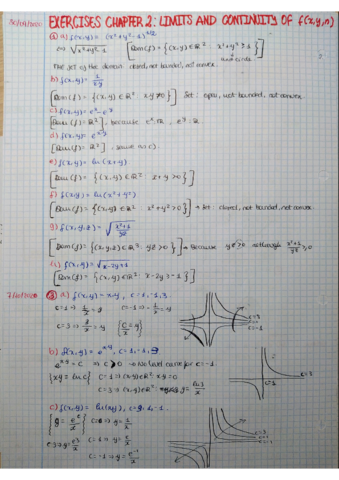 30/09/2020
EXERCISES CHAPTER 2: LIMITS AND CONTINUITY OF f(x,y,n)
② a) f(x,y) = (x²+y²-1)^{1/2}
⇔ √(x²+y²-1) [Dom(f) = {(x,y) ∈ ℝ² x²+y² ≥ 1}]
The set of the domain: closed, not bounded, not convex.
b) f(x,y) = 1/xy
[Dom(f) = {(x,y) ∈ ℝ² xy ≠ 0}] Set: open, not bounded, not convex.
c) f(x,y) = e^x - e^y
[Dom(f) = ℝ²], because e^x: ℝ, e^y: ℝ
d) f(x,y) = e^{x-y}
[Dom(f) = ℝ²], same as c).
e) f(x,y) = ln(x+y)
[Dom(f) = {(x,y) ∈ ℝ² x+y > 0}]
f) f(x,y) = ln(x²+y²)
[Dom(f) = {(x,y) ∈ ℝ² x²+y² > 0}] → Set: closed, not bounded, not convex
g) f(x,y,z) =
[Dom(f) = {(x,y,z) ∈ ℝ³ yz > 0}] → Because
h) f(x,y) = √(x-2y+1)
[Dom(f) = {(x,y) ∈ ℝ² x-2y ≥ -1}]
7/10/2020
③ a) f(x,y) = x·y, c = 1, -1, 3.
c=1 → 1/x = y c=-1 → -1/x = y
c=3 → 3/x = y {c/x = y}
c=3
c=1
c=-1
b) f(x,y) = e^{xy}, c = 1, -1, 3
e^{xy} = c ⇒ c > 0 → No level curve for c=-1
{xy = ln c} c=1 → (x,y) ∈ ℝ² xy = 0
c=3 → (x,y) ∈ ℝ² y = ln3/x
c=3
c=1
c) f(x,y) = ln(xy), c = 0, 1, -1
{y = e^c/x} c=0 → y = 1/x
c=3 → y = e³/x c=1 → y = e/x
c=-1 → y = e^{-1}/x
c=3
c=1
c=-1